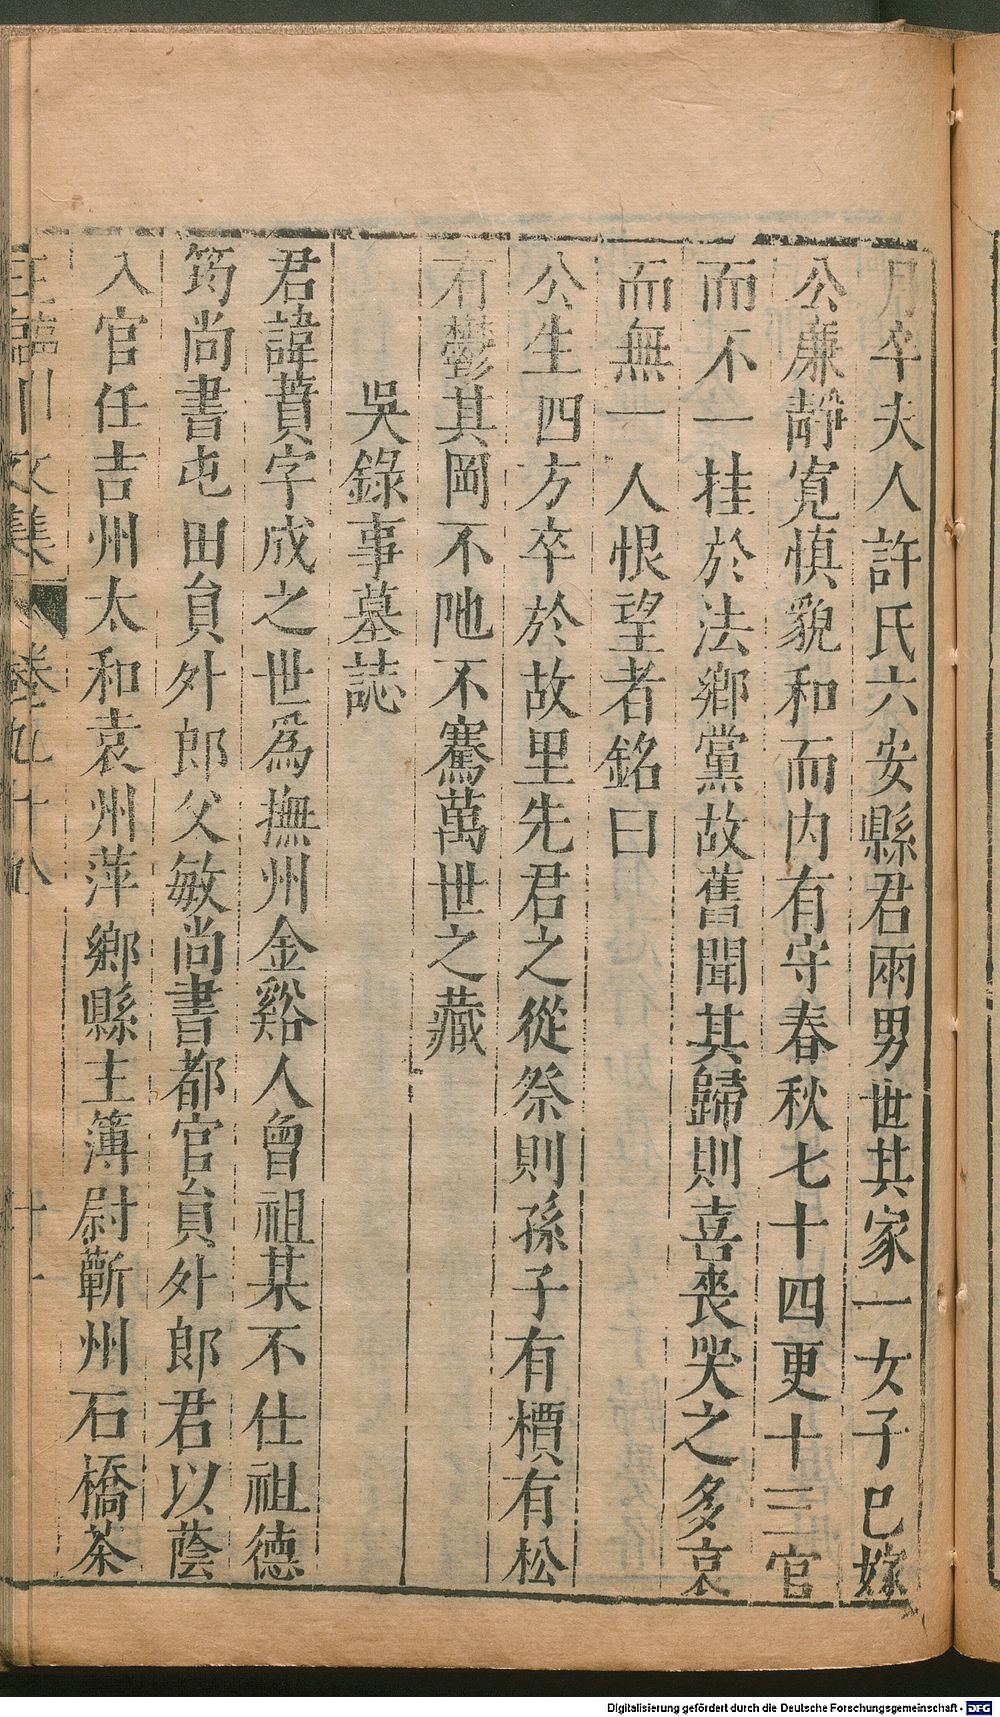 月卒夫人許氏六安縣君兩男世其家一女子已嫁
公廉靜寬慎貌和而内有守春秋七十四更十三官
而不一挂於法鄉黨故舊聞其歸則喜喪哭之多哀
而無一人恨望者銘曰
公生四方卒於故里先君之從祭則孫子有檟有松
有鬱其岡不阤不騫萬世之藏
吳錄事墓誌
君諱蕡字成之世爲撫州金谿人曾祖某不仕祖德
筠尚書屯田貟外郎父敏尚書都官貟外郎君以蔭
入官任吉州太和袁州萍鄉縣主簿尉蘄州石橋茶
王臨川文集 卷九十八 十一
Digitalisierung gefördert durch die Deutsche Forschungsgemeinschaft - DFG